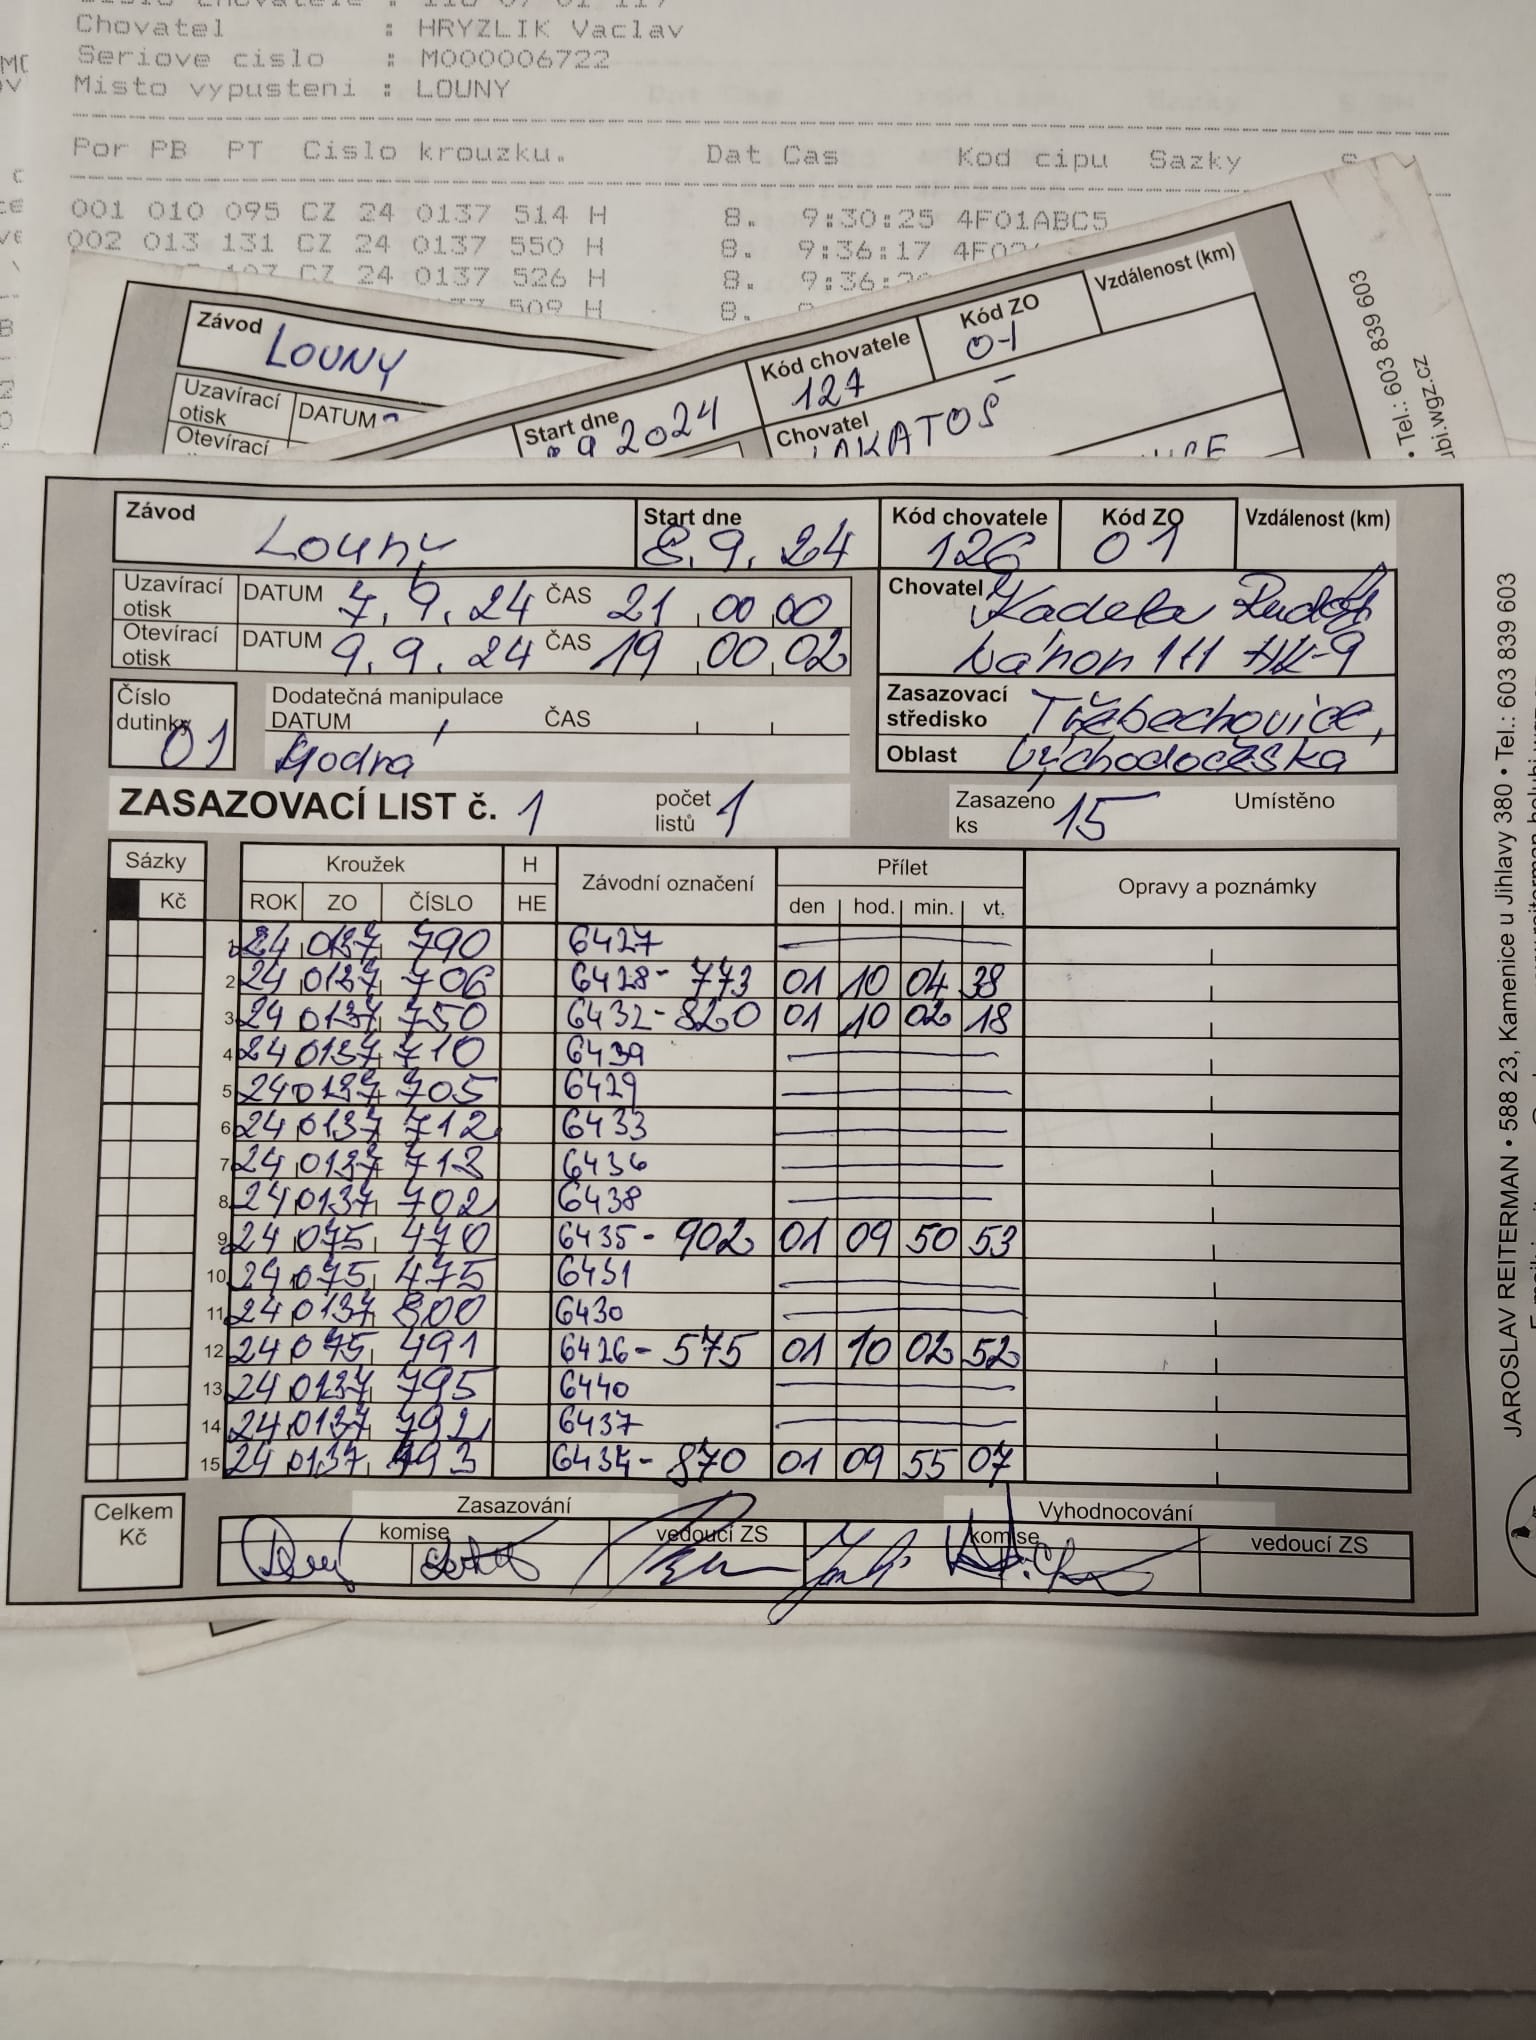 Chovatel : HRYZLIK Vaclav
Seriove cislo : M000006722
Misto vypusteni : LOUNY
Por PB PT Cislo krouzku. Dat Cas Kod cipu Sazky
001 010 095 CZ 24 0137 514 H 8. 9:30:25 4F01ABC5
002 013 131 CZ 24 0137 550 H 8. 9:36:17
CZ 24 0137 526 H 8. 9:36:
509 H 8.
Závod LOUNY
Uzavírací otisk DATUM
Otevírací
Start dne 9 2024
Kód chovatele 127
Kód ZO 01
Vzdálenost (km)
Chovatel LAKATOŠ
• Tel.: 603 839 603
Závod Louny
Start dne 8.9.24
Kód chovatele 126
Kód ZO 01
Vzdálenost (km)
Uzavírací otisk DATUM 7.9.24 ČAS 21 00 00
Otevírací otisk DATUM 9.9.24 ČAS 19 00 02
Chovatel Kadela Rudolf
111 HK-9
Číslo dutinky 01
Dodatečná manipulace
DATUM ČAS
Modrá
Zasazovací středisko Třebechovice,
Oblast Východočeská
ZASAZOVACÍ LIST č. 1 počet listů 1
Zasazeno ks 15 Umístěno
Sázky Kroužek H Závodní označení Přílet Opravy a poznámky
Kč ROK ZO ČÍSLO HE den hod. min. vt.
1 24 0137 790 6427
2 24 0137 706 6428- 773 01 10 04 38
3 24 0137 750 6432- 820 01 10 02 18
4 24 0137 710 6439
5 24 0137 705 6429
6 24 0137 712 6433
7 24 0137 713 6436
8 24 0137 702 6438
9 24 075 470 6435- 902 01 09 50 53
10 24 075 475 6431
11 24 0137 800 6430
12 24 075 491 6426- 575 01 10 02 52
13 24 0137 795 6440
14 24 0137 792 6437
15 24 0137 793 6434- 870 01 09 55 07
Celkem Kč
Zasazování Vyhodnocování
komise vedoucí ZS komise vedoucí ZS
JAROSLAV REITERMAN • 588 23, Kamenice u Jihlavy 380 • Tel.: 603 839 603